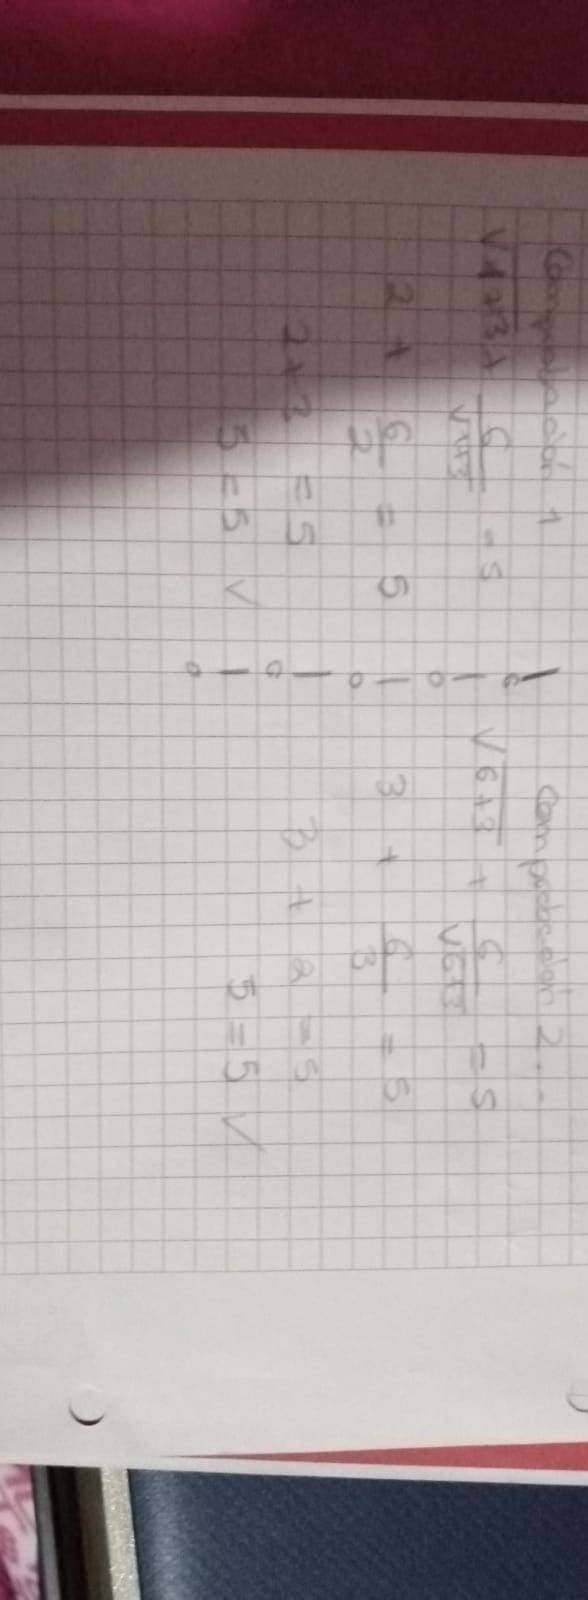 Comprobación 1
√1+3 + 6/√1+3 = 5
2 + 6/2 = 5
2+3 = 5
5 = 5 ✓
Comprobación 2...
√6+3 + 6/√6+3 = 5
3 + 6/3 = 5
3 + 2 = 5
5 = 5 ✓